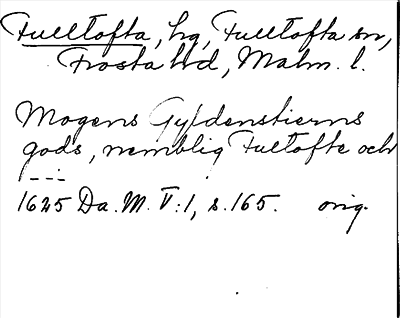 Fulltofta, hg, Fulltofta sn,
Frosta hd, Malm. l.
Mogens Gyldenstierns
gods, nemblig Fultofte och
---
1625 Da. M. V:1, s. 165. orig.